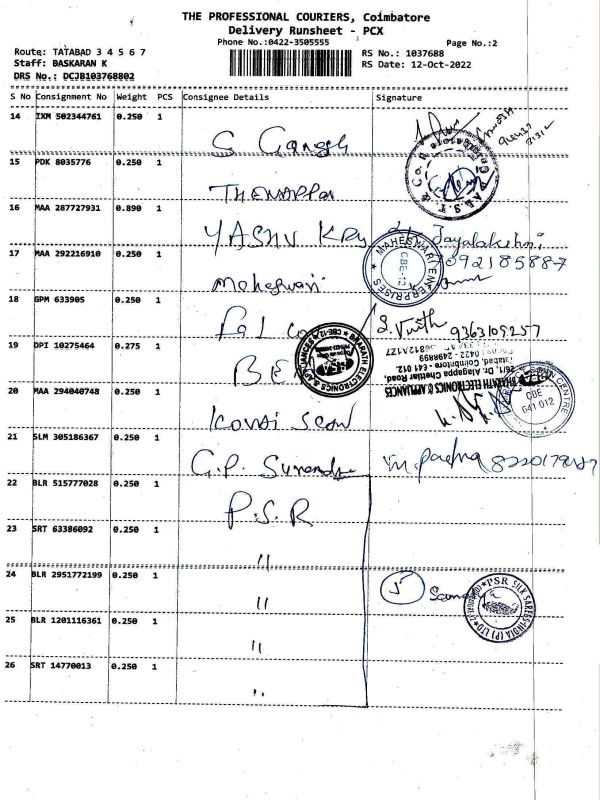 THE PROFESSIONAL COURIERS, Coimbatore
Delivery Runsheet - PCX
Phone No.:0422-3505555
Page No.:2
Route: TATABAD 3 4 5 6 7
RS No.: 1037688
Staff: BASKARAN K
RS Date: 12-Oct-2022
DRS No.: DCJB103768802
S No Consignment No Weight PCS Consignee Details Signature
14 IXM 502344761 0.250 1
S Ganesh
15 PDK 8035776 0.250 1
THENAPPA
16 MAA 287727931 0.890 1
YASHV Jayalakshmi
17 MAA 292216910 0.250 1
7092185887
MAHESWARI ENTERPRISES
CBE-12
Maheswari
18 GPM 633905 0.250 1
9363109257
19 DPI 10275464 0.275 1
BHARATH ELECTRONICS & APPLIANCES
CBE-12
BHARATH ELECTRONICS & APPLIANCES
261, Dr. Alagappa Chettiar Road,
Tatabad, Coimbatore - 641 012.
0422 - 2498899
20 MAA 294040748 0.250 1
KOVAI SCAN
CENTRE
CBE
641 012
21 SLM 305186367 0.250 1
G.P.
22 BLR 515777028 0.250 1
P.S.R
23 SRT 63386092 0.250 1
"
24 BLR 2951772199 0.250 1
"
5
PSR SILK SAREES INDIA (P) LTD
25 BLR 1201116361 0.250 1
"
26 SRT 14770013 0.250 1
"